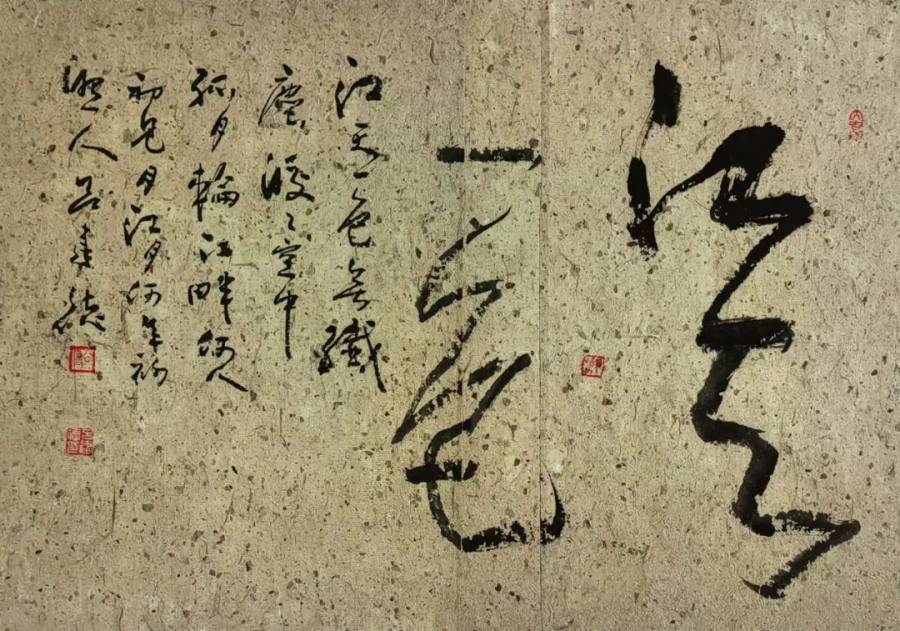 江天
一色
江天一色無纖
塵皎々空中
孤月輪江畔何人
初見月江月何年初
照人呂建德